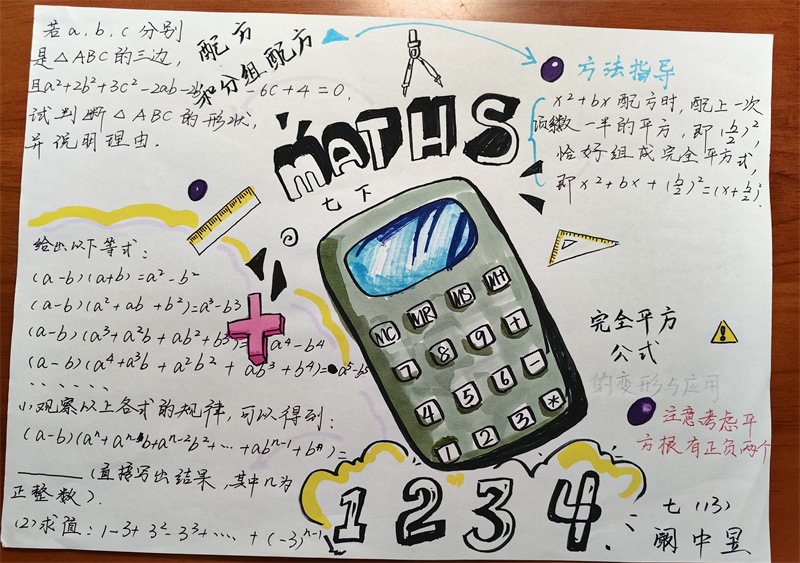 若a,b,c分别
是△ABC的三边,
且a²+2b²+3c²-2ab-2
-6c+4=0,
试判断△ABC的形状,
并说明理由.
配方
和分组配方
方法指导
x²+bx配方时,配上一次
项系数一半的平方,即(b/2)²,
恰好组成完全平方式,
即x²+bx+(b/2)²=(x+b/2)².
MATHS
七下
给出以下等式:
(a-b)(a+b)=a²-b²
(a-b)(a²+ab+b²)=a³-b³
(a-b)(a³+a²b+ab²+b³)=a⁴-b⁴
(a-b)(a⁴+a³b+a²b²+ab³+b⁴)=a⁵-b⁵
······
(1)观察以上各式的规律,可以得到:
(a-b)(aⁿ+aⁿ⁻¹b+aⁿ⁻²b²+···+abⁿ⁻¹+bⁿ)=
______(直接写出结果,其中n为
正整数).
(2)求值:1-3+3²-3³+····+(-3)ⁿ⁻¹
MC MR MS M+
7 8 9 +
4 5 6 -
1 2 3 *
完全平方
公式
的变形与应用
注意考虑平
方根有正负两个
1 2 3 4
七(13)
阚中昱